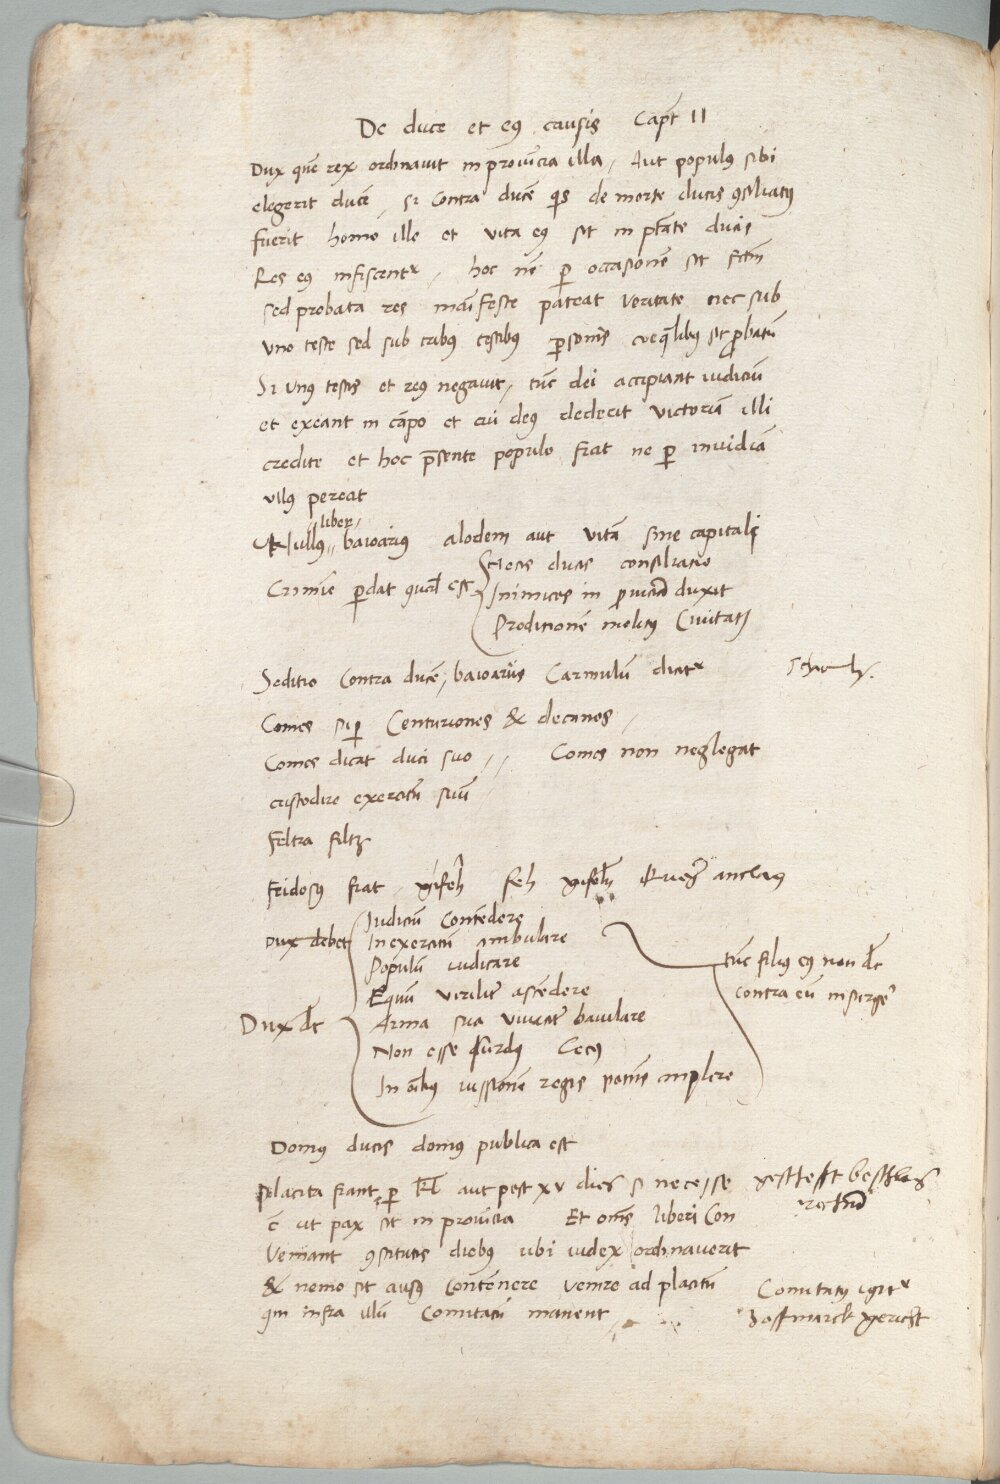 De duce et eꝰ causis Capt II
Dux quē rex ordinavit in provĩcia illa, Aut populꝰ sibi
elegerit ducē, si contra ducē qis de morte ducis ꝯsiliatꝰ
fuerit homo ille et vita eꝰ sit in ptāte ducis
Res eꝰ infiscentr, hoc nō ꝑ occasionē sit fctm
sed probata res manifeste pateat veritate nec sub
uno teste sed sub tribꝰ testibꝰ ꝑsonis coeqlibꝰ sit ꝓbatū
Si unꝰ testis et reꝰ negavit, tūc dei accipiant iudiciū
et exeant in cāpo et cui deꝰ dederit victoriā illi
credite et hoc p̄sente populo fiat ne ꝑ invidiā
ullꝰ pereat
liber
Nullꝰ baioariꝰ alodem aut vitā sine capitali
Crimine ꝑdat quod est
Necis ducis consiliatio
Inimicos in ꝓvinciā duxit
Proditionē molitꝰ Civitatis
Seditio contra ducē, baioariis Carmulū dicitr
Comes suꝑ Centuriones & decanos,
Comes dicat duci suo,, Comes non neglegat
custodire exercitū suū
Feltra filtz
Feidosꝰ fiat, feh
ancillaꝰ
Dux debet
Iudiciū Contēdere
In exercitū ambulare
Populū iudicare
Equū virilit ascēdere
Dux dt
Arma sua vivacit baiulare
Non esse surdꝰ Cecꝰ
In oībus iussionē regis potens inplere
tūc filius eꝰ non dt
contra eū insurge
Domꝰ ducis domꝰ publica est
placita fiant ꝑ kl aut post xv dies si necesse
ē ut pax sit in provīcia Et omēs liberi Con
Veniant ꝯstitutis diebꝰ ubi iudex ordinaverit
& nemo sit ausꝰ contēnere venire ad placitū
qui infra illū Comitatū manent
Comitatꝰ igitr
Hoffmarck gericht